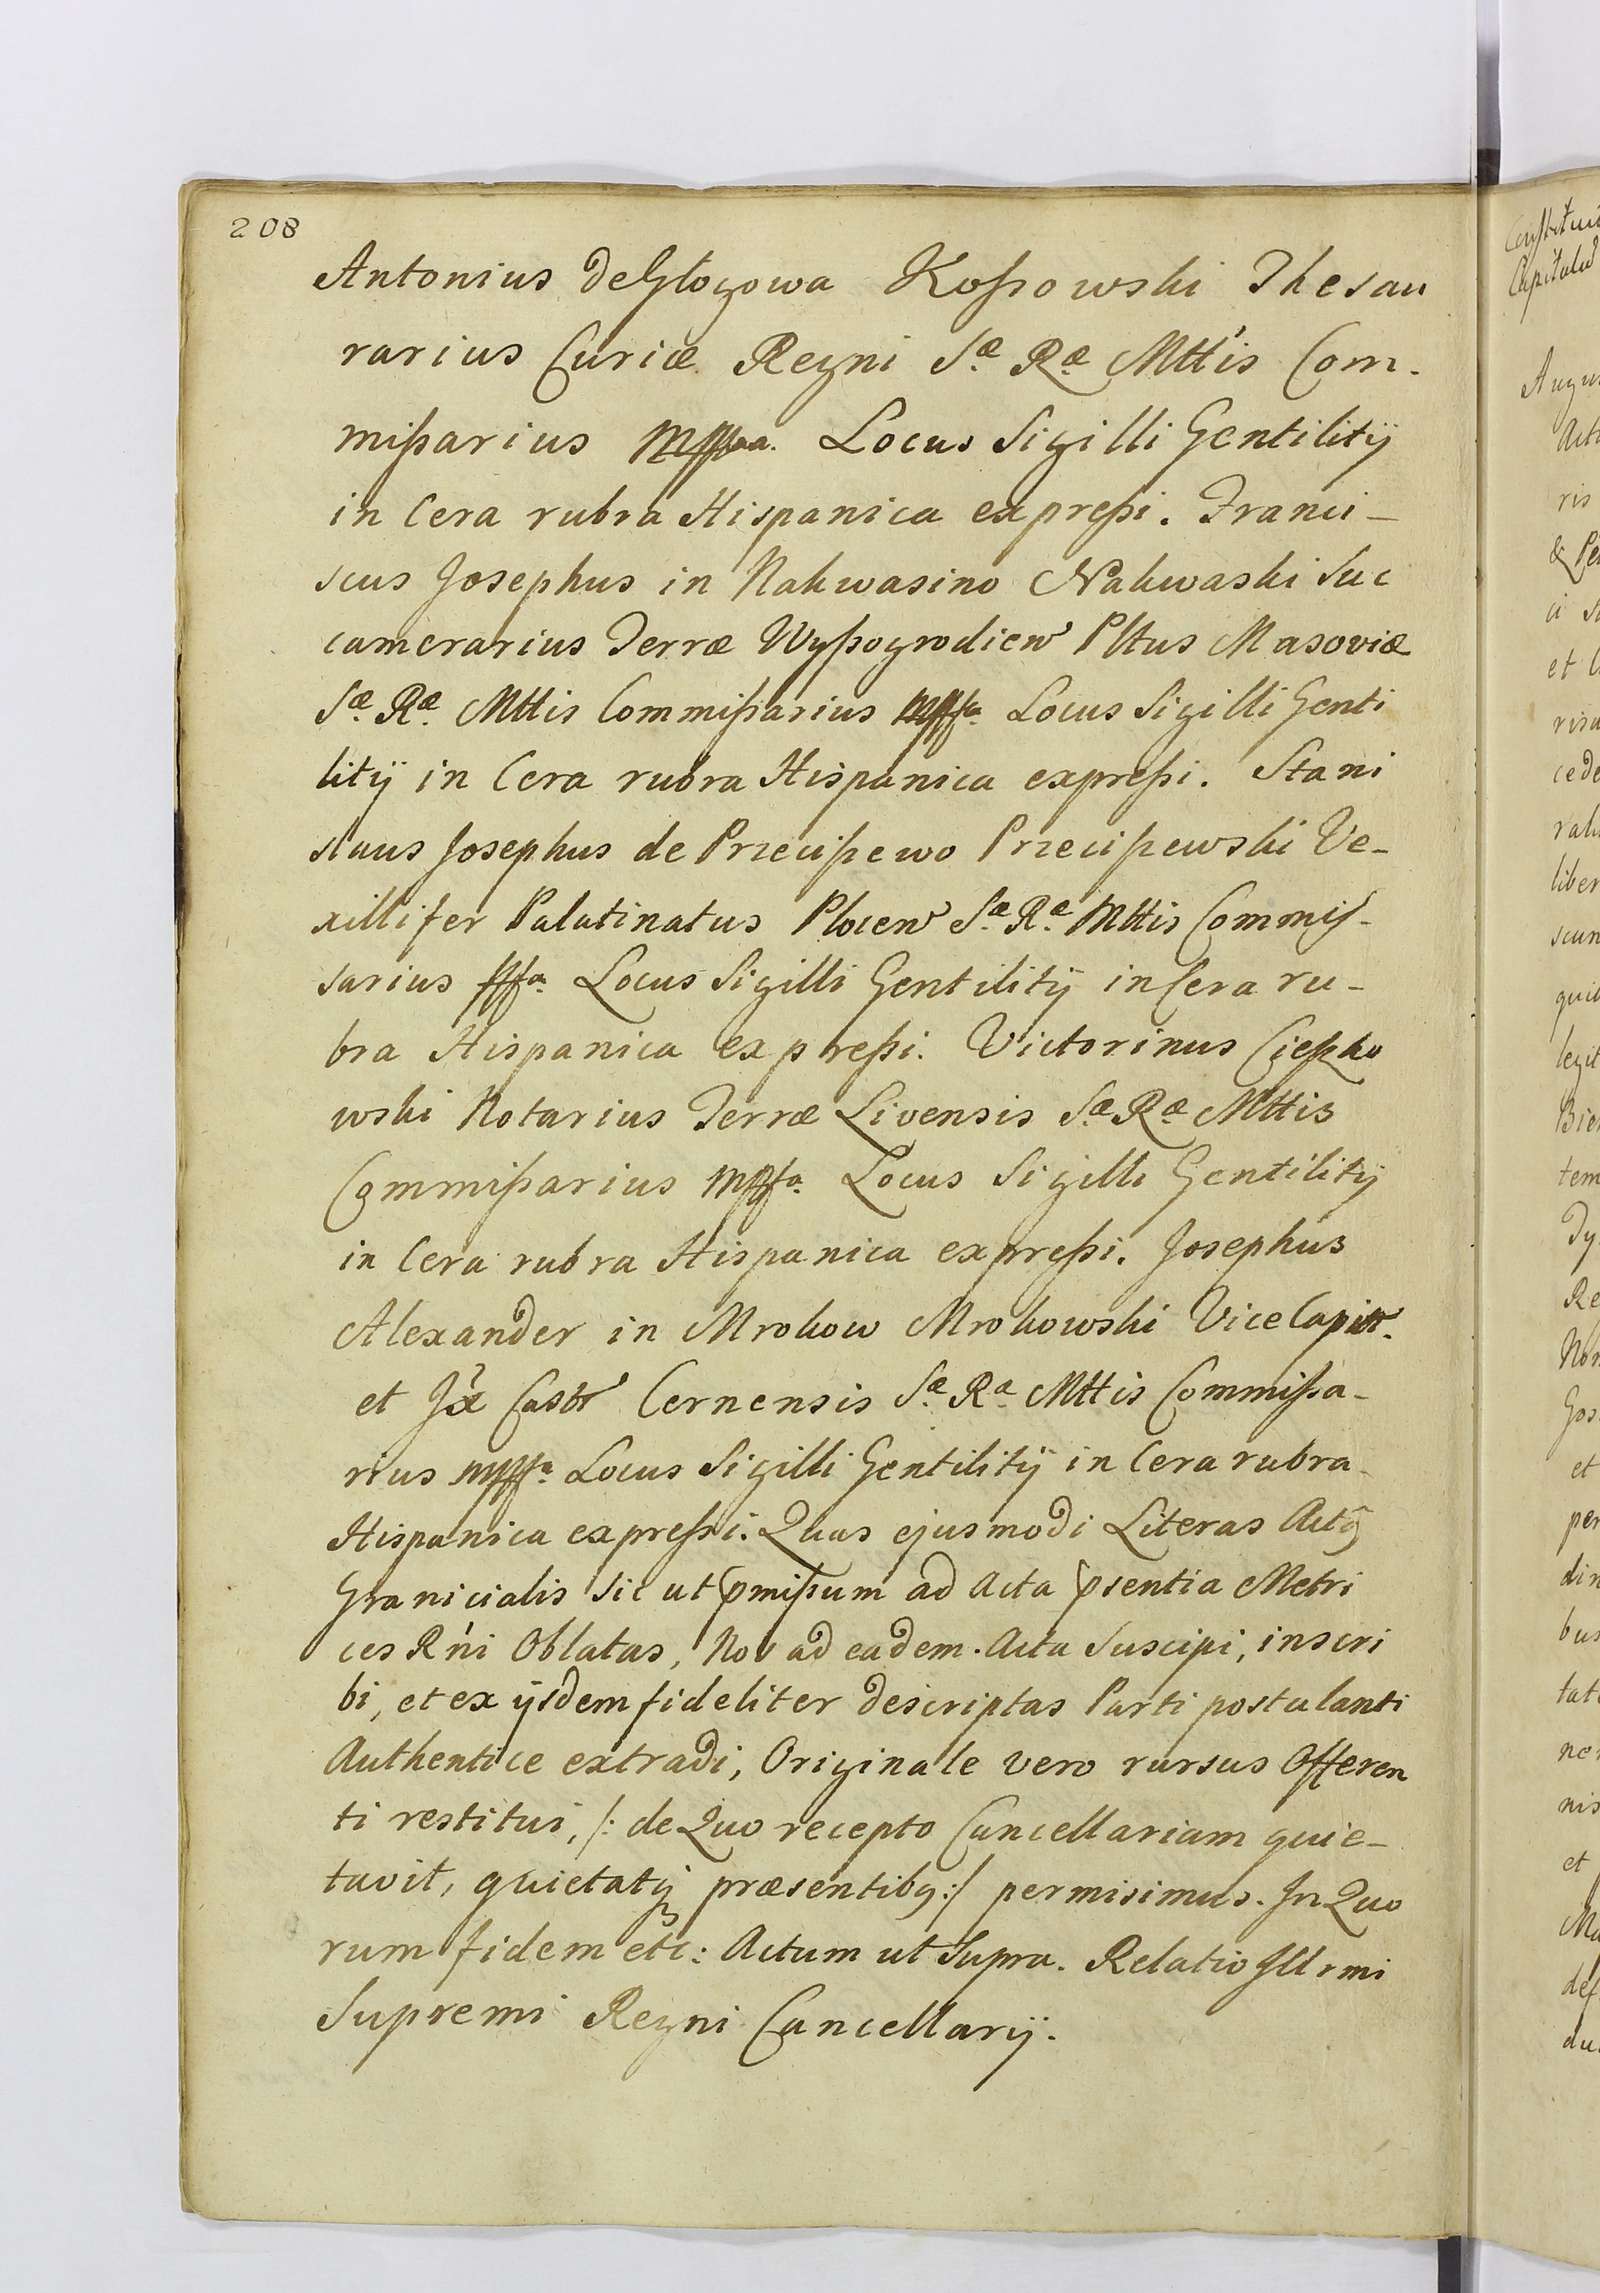 208
Antonius de Głogowa Koßowski Thesau
rarius Curiæ Regni Sæ Ræ Mttis Com-
mißarius mppa. Locus Sigilli Gentilitij
in Cera rubra Hispanica expreßi. Franci-
scus Josephus in Nakwasino Nakwaski Suc
camerarius Terræ Wyßogrodien Pltus Masoviæ
Sæ Ræ Mttis Commißarius mppa Locus Sigilli Genti
litij in Cera rubra Hispanica expreßi. Stani
slaus Josephus de Przecißewo Przecißewski Ve-
xillifer Palatinatus Plocen Sæ Ræ Mttis Commis-
sarius mppa Locus Sigilli Gentilitij in Cera ru-
bra Hispanica expreßi. Victorinus Cießko
wski Notarius Terræ Livensis Sæ Ræ Mttis
Commißarius mppa Locus Sigilli Gentilitij
in Cera rubra Hispanica expreßi. Josephus
Alexander in Mrokow Mrokowski Vice Capitt.
et Jx Castr Cernensis Sæ Ræ Mttis Commißa-
rius mppa Locus Sigilli Gentilitij in Cera rubra
Hispanica expreßi. Quas ejusmodi Literas Actq
Granicialis sic ut pmißum ad Acta psentia Metri
ces Rni Oblatas, Nos ad eadem Acta Suscipi, inscri
bi, et ex ijsdem fideliter descriptas Parti postulanti
Authentice extradi, Originale vero rursus Offeren
ti restitui, /: de Quo recepto Cancellariam quie-
tavit, quietatq præsentibq :/ permisimus. In Quo
rum fidem etc: Actum ut Supra. Relatio Illrmi
Supremi Regni Cancellarij.